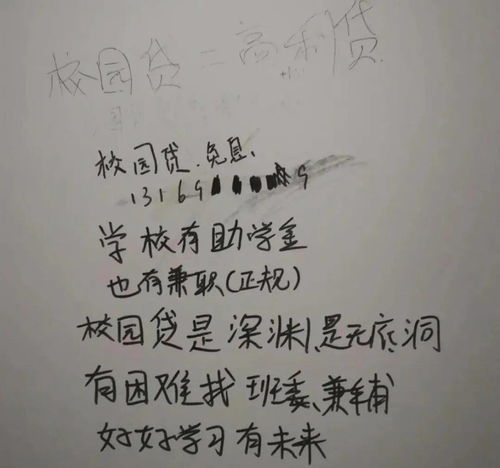 校园贷=高利贷
校园贷.免息、
13169 9
学校有助学金
也有兼职(正规)
校园贷是深渊,是无底洞
有困难找班委、兼辅
好好学习有未来